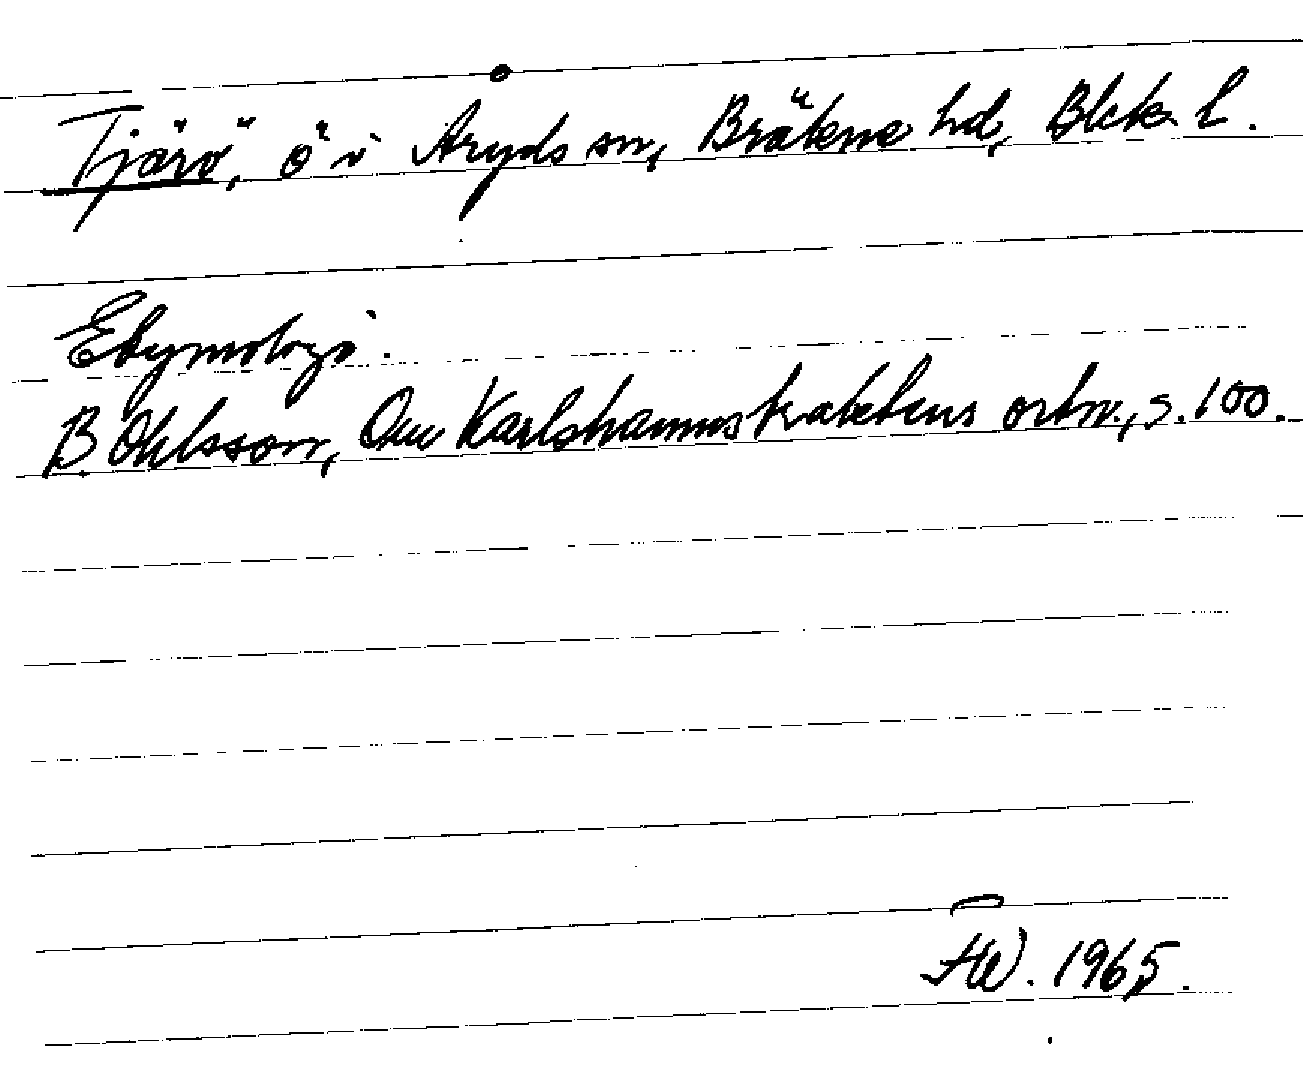 Tjärö, ö i Åryds sn, Bräkne hd, Blek. l.
Etymologi.
B. Ohlsson, Om Karlshamnstraktens ortn., s. 100.
1965.